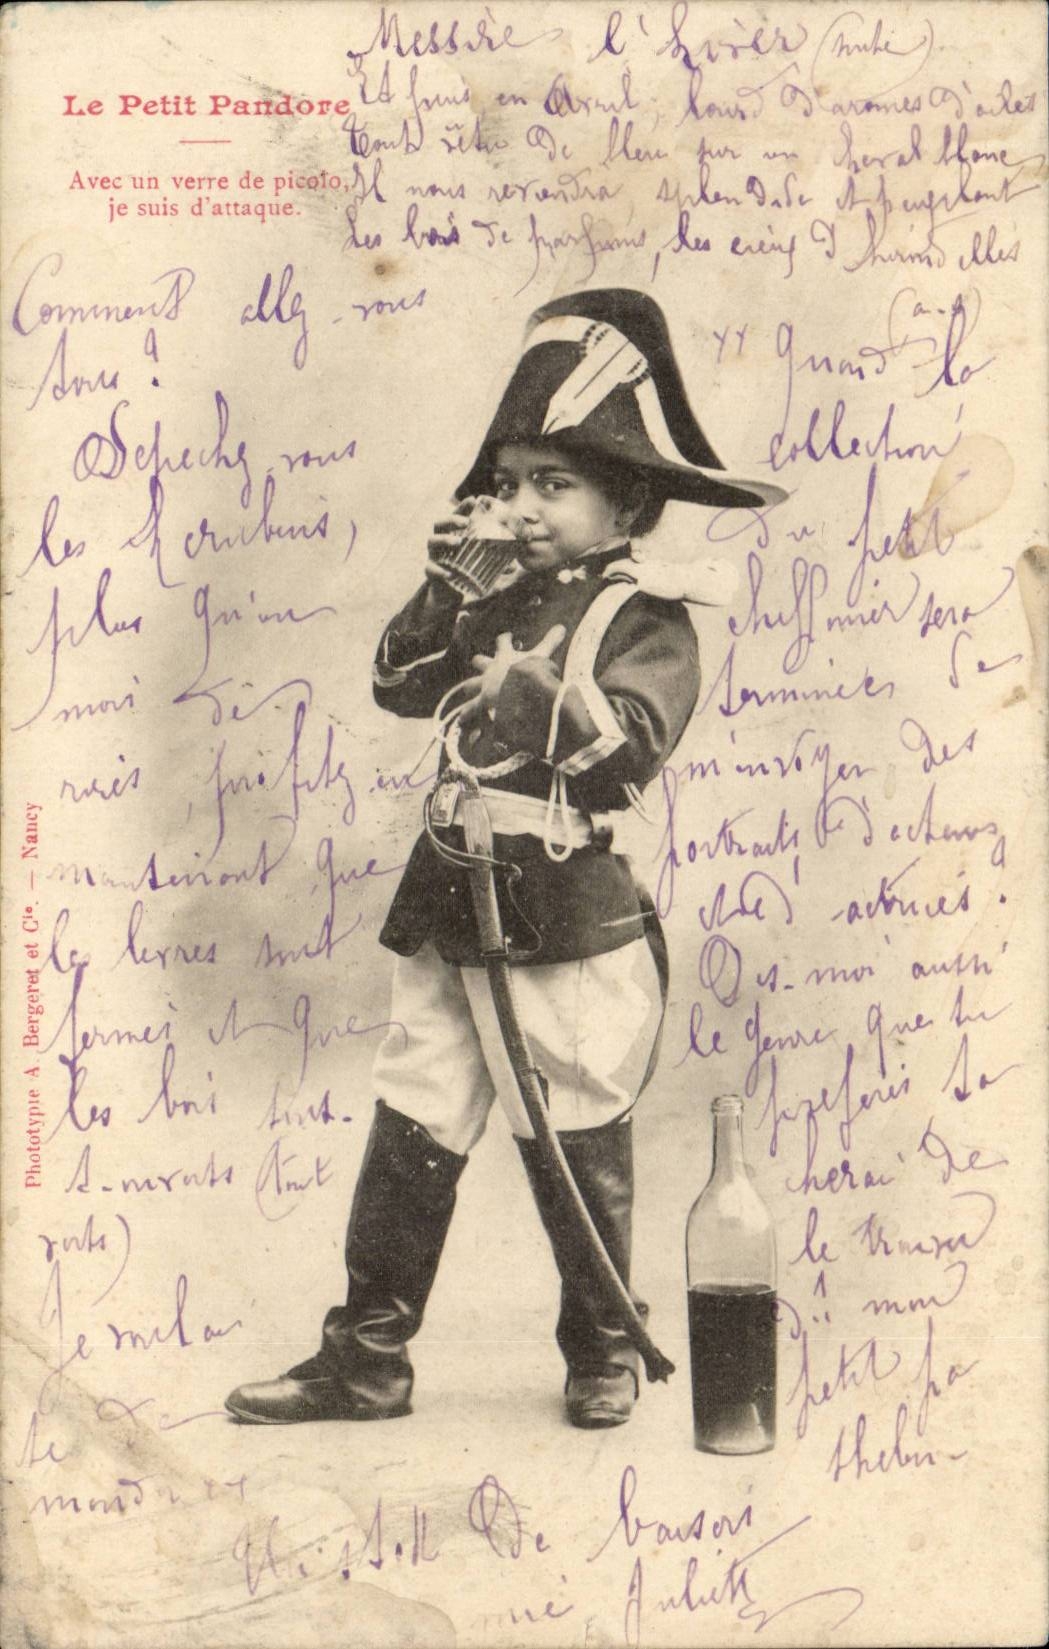 Messire l'hiver (suite)
Et puis en Avril, lourd d'aromes d'ailes
Tout vêtu de bleu sur un cheval blanc
Il nous reviendra, splendide et peuplant
Les bois de parfums, les cieux d'hirondelles
Le Petit Pandore
Avec un verre de picolo,
je suis d'attaque.
Comment allez-vous
tous?
Depechez vous
les cherubins,
plus qu'un
mois
profitez en
maintenant que
les levres sont
fermes et que
les bois sont
(tout
verts)
Je voulais
te
Quand la
collection
du petit
chiffonnier sera
terminée
m'envoyer des
portraits d'acteurs
et d'actrices?
Dis-moi aussi
le genre que tu
preferes ta
cherai de
le trouver
mon
petit pa
de baisers
Juliette
Phototypie A. Bergeret et Cie. — Nancy